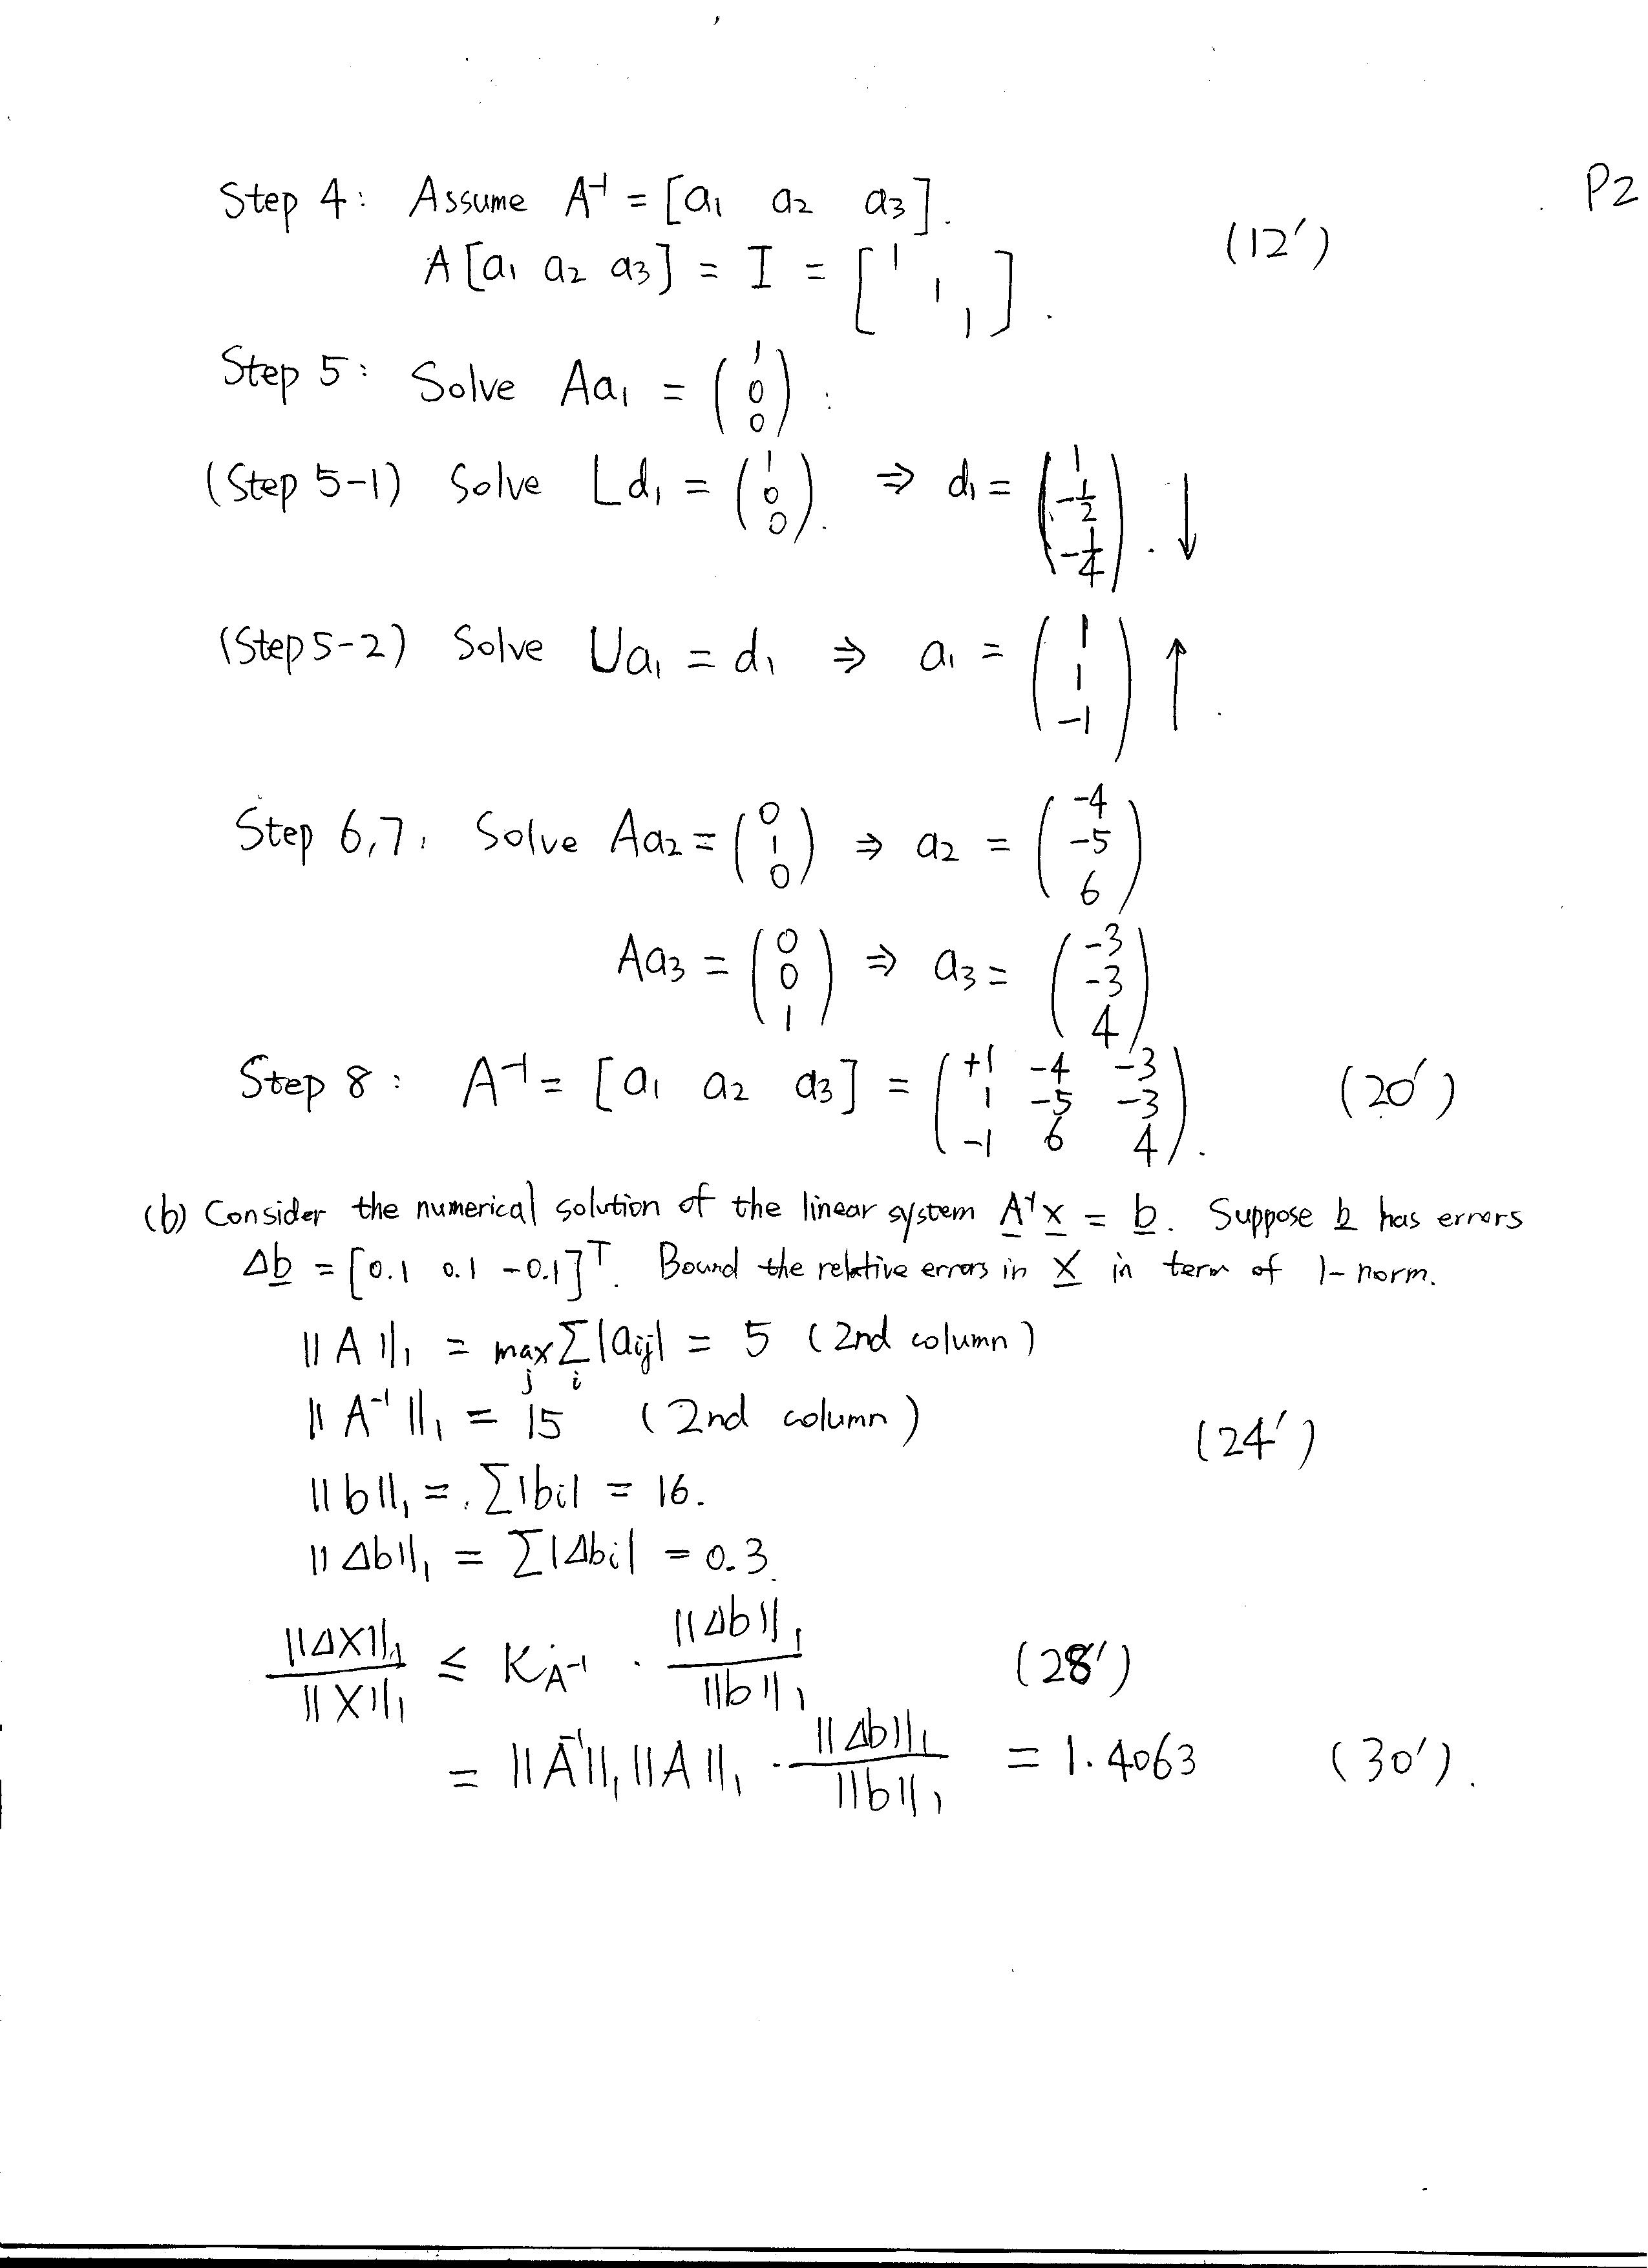 P2
Step 4: Assume A⁻¹ = [a₁ a₂ a₃].
(12')
A[a₁ a₂ a₃] = I = [1 1 1].
Step 5: Solve Aa₁ = (1 0 0):
(Step 5-1) Solve Ld₁ = (1 0 0). ⇒ d₁ = (1 -1/2 -1/4). ↓
(Step 5-2) Solve Ua₁ = d₁ ⇒ a₁ = (1 1 -1) ↑.
Step 6,7, Solve Aa₂ = (0 1 0) ⇒ a₂ = (-4 -5 6)
Aa₃ = (0 0 1) ⇒ a₃ = (-3 -3 4)
Step 8: A⁻¹ = [a₁ a₂ a₃] = (+1 -4 -3
1 -5 -3
-1 6 4). (20')
(b) Consider the numerical solution of the linear system A⁻¹x = b. Suppose b has errors
Δb = [0.1 0.1 -0.1]ᵀ. Bound the relative errors in X in term of 1-norm.
||A||₁ = max_j Σ_i |aij| = 5 (2nd column)
||A⁻¹||₁ = 15 (2nd column) (24')
||b||₁ = Σ|bi| = 16.
||Δb||₁ = Σ|Δbi| = 0.3
||ΔX||₁/||X||₁ ≤ K_A⁻¹ · ||Δb||₁/||b||₁ (28')
= ||A⁻¹||₁ ||A||₁ · ||Δb||₁/||b||₁ = 1.4063 (30').